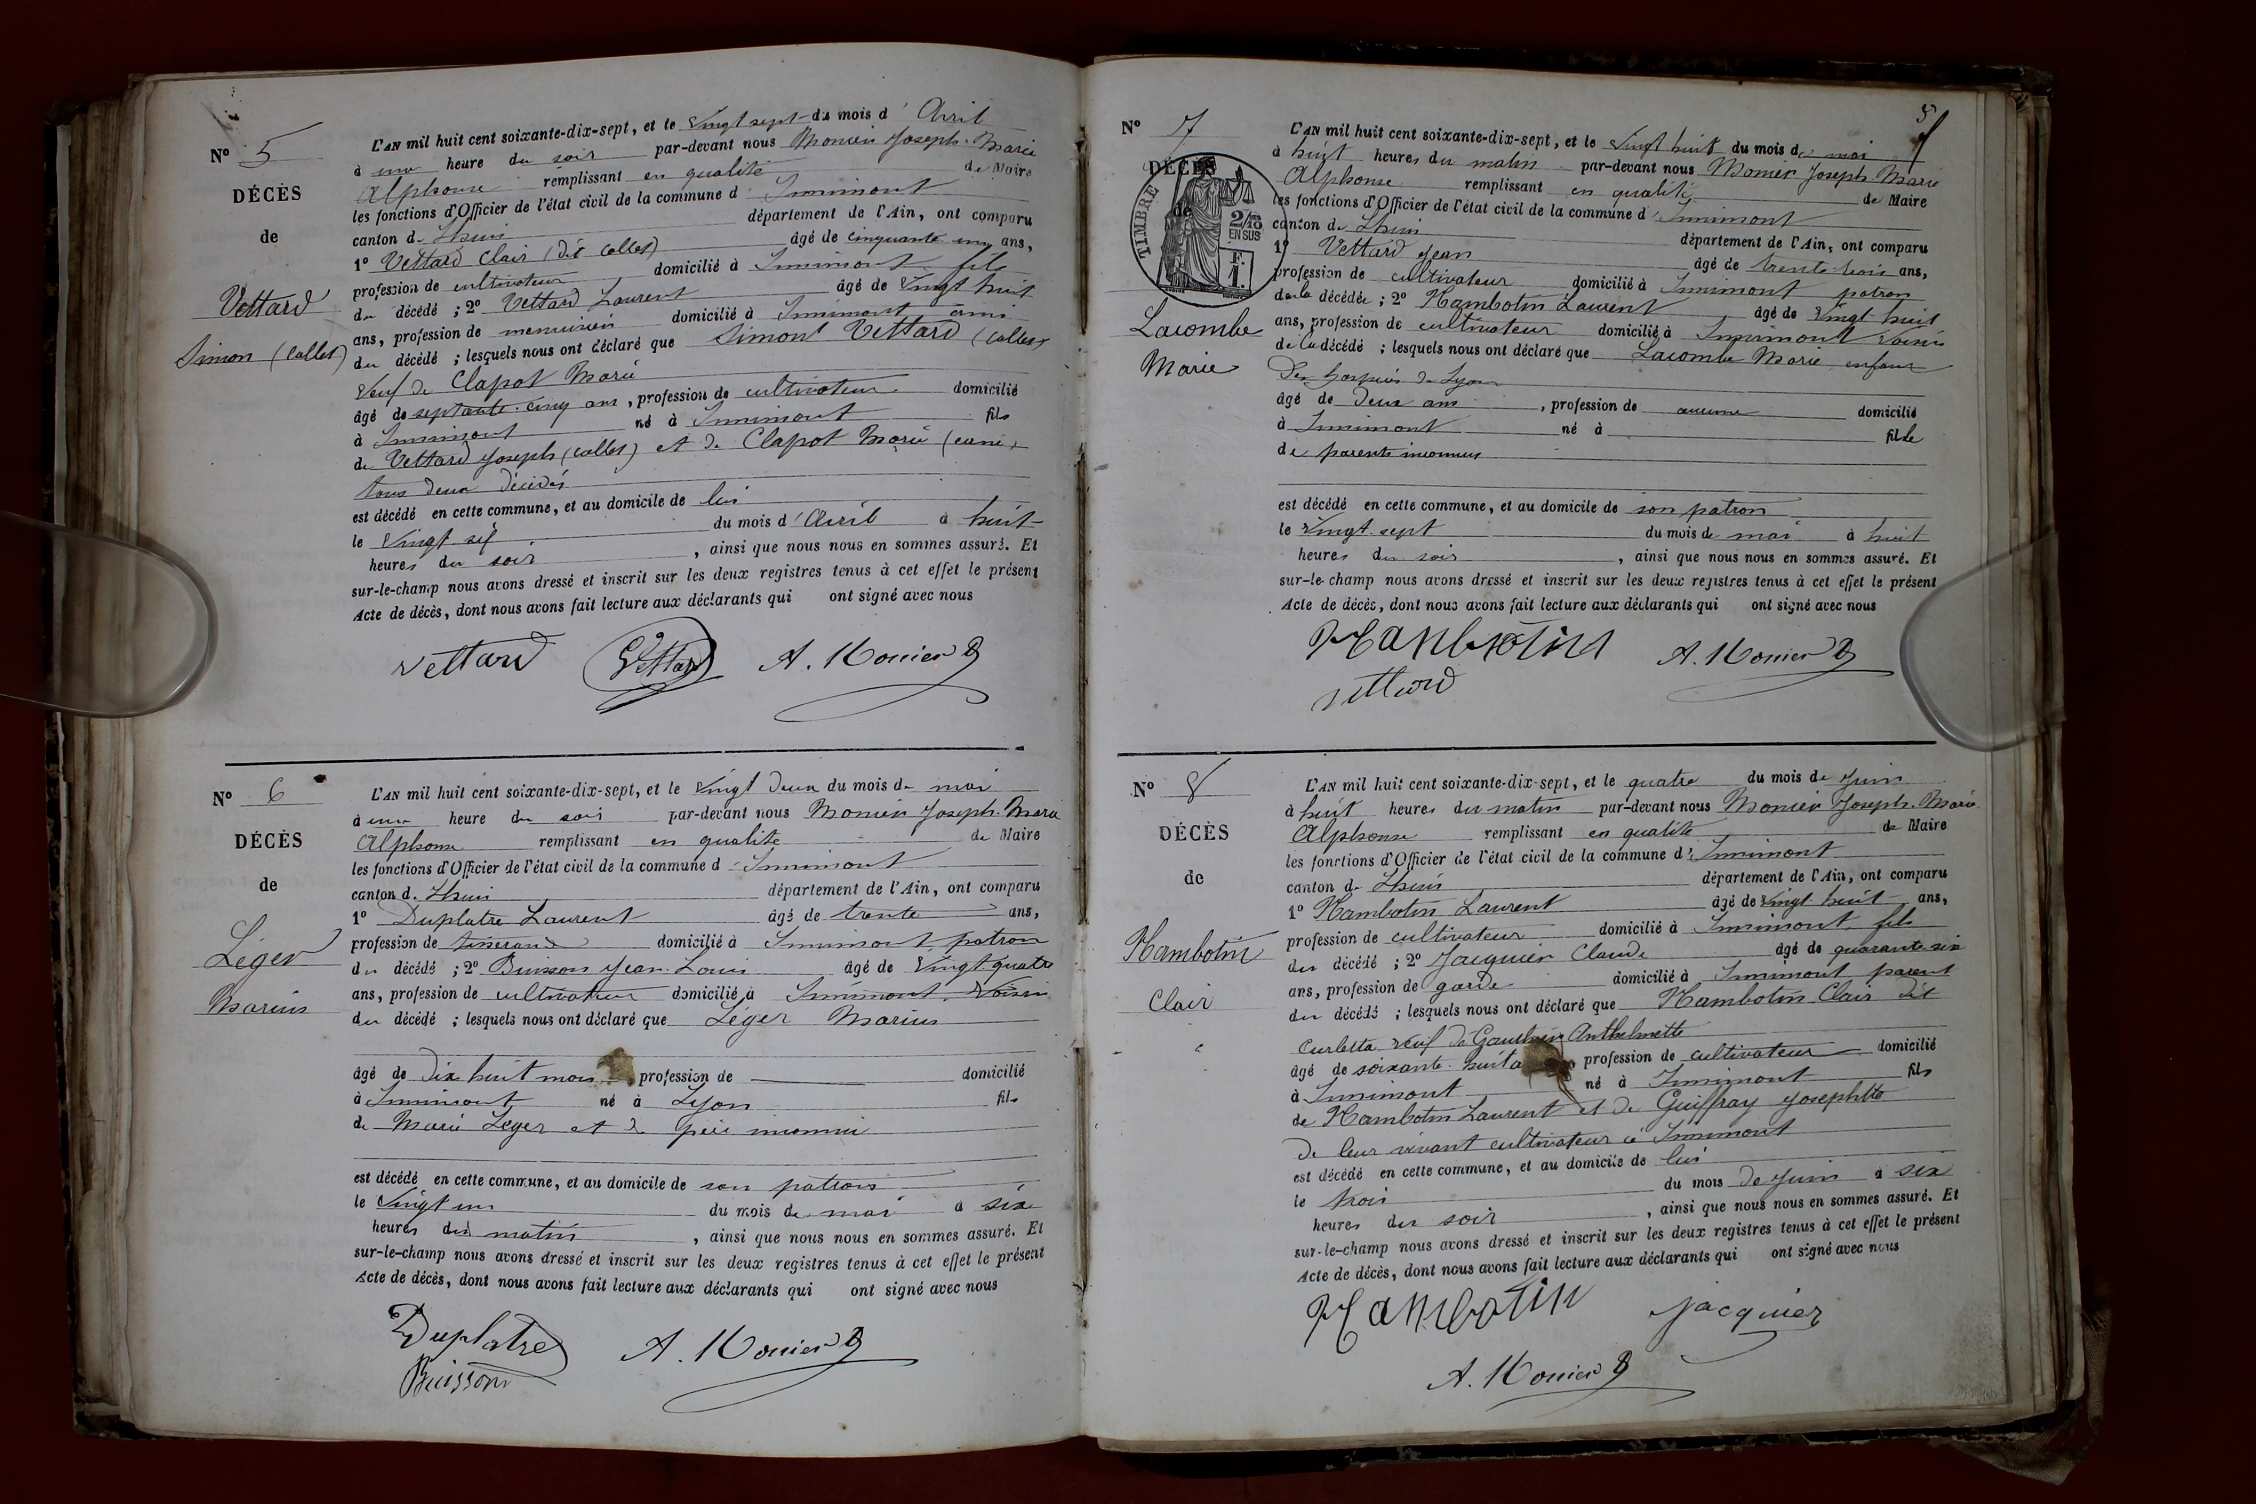 Nº 5
DÉCÈS
de
Vettard
Simon (Collet)
L'AN mil huit cent soixante-dix-sept, et le Vingt sept du mois d'Avril
à une heure du soir par-devant nous Monier Joseph-Marie
Alphonse remplissant en qualité de Maire
les fonctions d'Officier de l'état civil de la commune d'Innimont
canton de Lhuis département de l'Ain, ont comparu
1º Vettard Clair (dit Collet) âgé de cinquante ans,
profession de cultivateur domicilié à Innimont fils
du décédé ; 2º Vettard Laurent âgé de Vingt huit
ans, profession de menuisier domicilié à Innimont ami
du décédé ; lesquels nous ont déclaré que Simont Vettard (Collet)
Veuf de Clapot Marie
âgé de septante-cinq ans, profession de cultivateur domicilié
à Innimont né à Innimont fils
de Vettard Joseph (Collet) et de Clapot Marie
tous deux décédés
est décédé en cette commune, et au domicile de lui
le Vingt six du mois d'Avril à huit
heures du soir, ainsi que nous nous en sommes assuré. Et
sur-le-champ nous avons dressé et inscrit sur les deux registres tenus à cet effet le présent
Acte de décès, dont nous avons fait lecture aux déclarants qui ont signé avec nous
Vettard Vettard A. Monier
Nº 6
DÉCÈS
de
Léger
Marius
L'AN mil huit cent soixante-dix-sept, et le Vingt deux du mois de mai
à une heure du soir par-devant nous Monier Joseph-Marie
Alphonse remplissant en qualité de Maire
les fonctions d'Officier de l'état civil de la commune d'Innimont
canton de Lhuis département de l'Ain, ont comparu
1º Duplatre Laurent âgé de trente ans,
profession de tisserand domicilié à Innimont patron
du décédé ; 2º Buisson Jean-Louis âgé de Vingt quatre
ans, profession de cultivateur domicilié à Innimont, Voisin
du décédé ; lesquels nous ont déclaré que Léger Marius
âgé de Dix huit mois, profession de domicilié
à Innimont né à Lyon fils
de Marie Léger et de père inconnu
est décédé en cette commune, et au domicile de son patron
le Vingt un du mois de mai à six
heures du matin, ainsi que nous nous en sommes assuré. Et
sur-le-champ nous avons dressé et inscrit sur les deux registres tenus à cet effet le présent
Acte de décès, dont nous avons fait lecture aux déclarants qui ont signé avec nous
Duplatre A. Monier
Buisson
5
Nº 7
DÉCÈS
de
TIMBRE
2/10 EN SUS
F. 1.
Lacombe
Marie
L'AN mil huit cent soixante-dix-sept, et le Vingt huit du mois de mai
à huit heures du matin par-devant nous Monier Joseph Marie
Alphonse remplissant en qualité de Maire
les fonctions d'Officier de l'état civil de la commune d'Innimont
canton de Lhuis département de l'Ain, ont comparu
1º Vettard Jean âgé de trente trois ans,
profession de cultivateur domicilié à Innimont patron
de la décédée ; 2º Hambotin Laurent âgé de Vingt huit
ans, profession de cultivateur domicilié à Innimont Voisin
de la décédé ; lesquels nous ont déclaré que Lacombe Marie enfant
Des hospices de Lyon
âgé de Deux ans, profession de aucune domicilié
à Innimont né à fille
de parents inconnus
est décédé en cette commune, et au domicile de son patron
le Vingt-sept du mois de mai à huit
heures du soir, ainsi que nous nous en sommes assuré. Et
sur-le-champ nous avons dressé et inscrit sur les deux registres tenus à cet effet le présent
Acte de décès, dont nous avons fait lecture aux déclarants qui ont signé avec nous
Hambotin A. Monier
Vettard
Nº 8
DÉCÈS
de
Hambotin
Clair
L'AN mil huit cent soixante-dix-sept, et le quatre du mois de Juin
à huit heures du matin par-devant nous Monier Joseph-Marie
Alphonse remplissant en qualité de Maire
les fonctions d'Officier de l'état civil de la commune d'Innimont
canton de Lhuis département de l'Ain, ont comparu
1º Hambotin Laurent âgé de Vingt huit ans,
profession de cultivateur domicilié à Innimont, fils
du décédé ; 2º Jacquier Claude âgé de quarante-six
ans, profession de garde domicilié à Innimont parent
du décédé ; lesquels nous ont déclaré que Hambotin Clair dit
Curletta veuf de Gauthier Anthelmette
âgé de soixante-huit profession de cultivateur domicilié
à Innimont né à Innimont fils
de Hambotin Laurent et de Guiffray Josephtte
De leur vivant cultivateur à Innimont
est décédé en cette commune, et au domicile de lui
le trois du mois de Juin à six
heures du soir, ainsi que nous nous en sommes assuré. Et
sur-le-champ nous avons dressé et inscrit sur les deux registres tenus à cet effet le présent
Acte de décès, dont nous avons fait lecture aux déclarants qui ont signé avec nous
Hambotin Jacquier
A. Monier